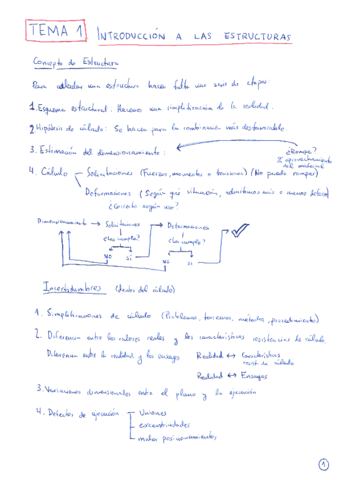 TEMA 1 INTRODUCCIÓN A LAS ESTRUCTURAS
Concepto de Estructura
Para calcular una estructura hacen falta una serie de etapas:
1. Esquema estructural: Hacemos una simplificación de la realidad.
2. Hipótesis de cálculo: Se hacen para la combinación más desfavorable.
3. Estimación del dimensionamiento:
¿Rompe?
El aprovechamiento del material
4. Cálculo - Solicitaciones (Fuerzas, momentos o tensiones) (No puede romper)
Deformaciones (Según qué situación, admitimos más o menos
¿Correcto según uso?
Dimensionamiento → Solicitaciones → Deformaciones →
¿las cumple? ¿las cumple?
NO SI NO SI
Incertidumbres (dentro del cálculo)
1. Simplificaciones de cálculo (Problemas, tensiones, métodos, procedimientos)
2. Diferencia entre los valores reales y las características resistencias de cálculo.
Diferencia entre la realidad y los ensayos Realidad ↔ Características
resist de cálculo
Realidad ↔ Ensayos
3. Variaciones dimensionales entre el plano y la ejecución
4. Defectos de ejecución - Uniones
- excentricidades
- malos posicionamientos
1